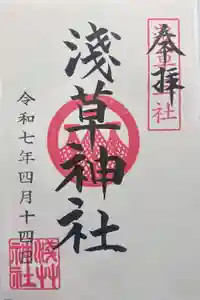 奉拝
淺草神社
令和七年四月十四日
淺草
神社